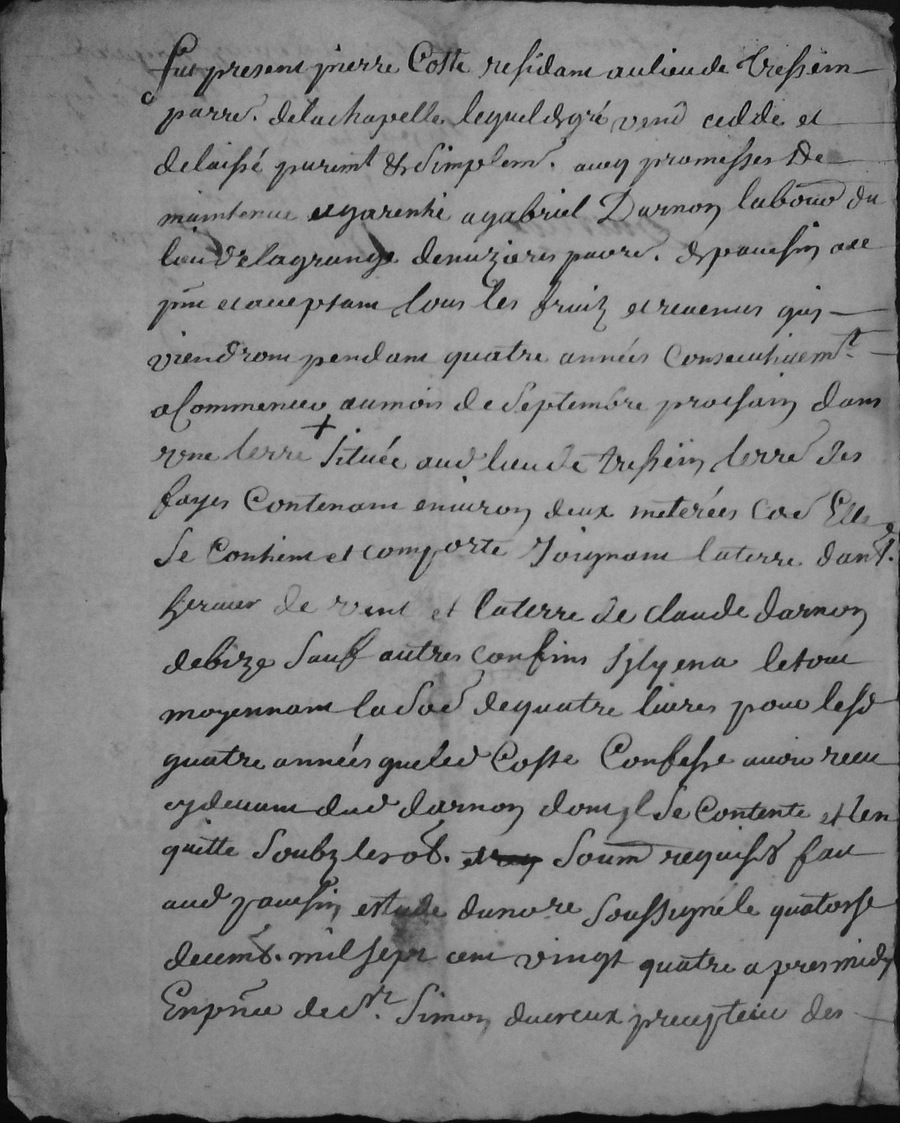 fut present pierre Coste residant au lieu de Tressein
parre. de la chapelle lequel de gré vend cedde et
delaissé puremt & simplemt. avec promesses de
maintenue et garentie a gabriel Darnon labour du
lieu de la grange denuzieres parre. de pausin ace
pnt et acceptant tous les fruiz et revenus quy
viendront pendant quatre années consecutivemt
a Commencer au mois de septembre prochain dans
une terre + située aud lieu de tressein terre des
fayes Contenant environ deux meterées Coe Elle
se Contient et comporte Joignant la terre dant.
de vent et la terre de claude darnon
de bize sauf autres confins sy ly en a le tout
moyennant la so͠e de quatre livres pour lesd
quatre années que led Coste Confesse avoir receu
cydevant dud darnon dont Il se Contente et len
quitte soubz les ob. soum requis & fait
aud pausin estude du no͠re soussigné le quatorse
decemb. mil sept cent vingt quatre apres midy
En pñce de Sr. Simon ducreux precepteur des